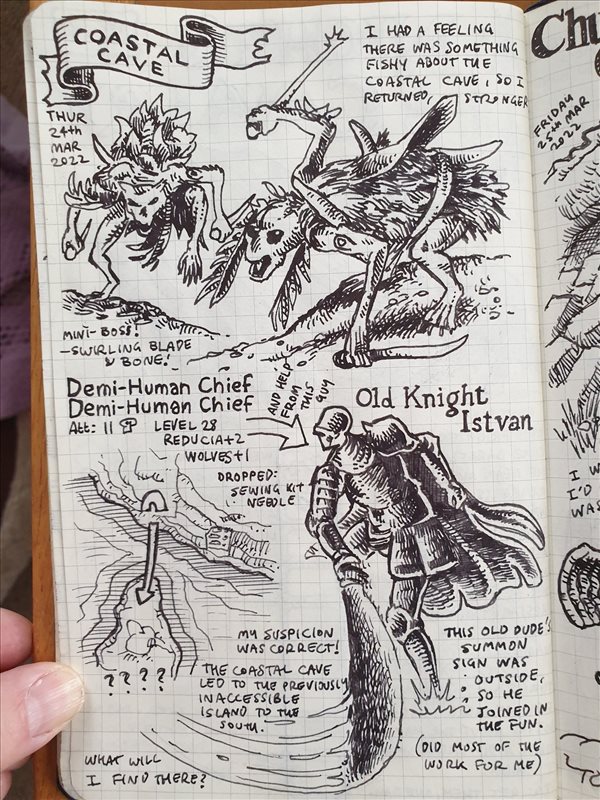 COASTAL
CAVE
THUR
24th
MAR
2022
I HAD A FEELING
THERE WAS SOMETHING
FISHY ABOUT THE
COASTAL CAVE, SO I
RETURNED, STRONGER
MINI-BOSS!
-SWIRLING BLADE
& BONE!
Demi-Human Chief
Demi-Human Chief
Att: 11 LEVEL 28
REDUCIA+2
WOLVES+1
AND HELP
FROM
THIS
GUY
Old Knight
Istvan
DROPPED:
SEWING KIT
NEEDLE
MY SUSPICION
WAS CORRECT!
THE COASTAL CAVE
LED TO THE PREVIOUSLY
INACCESSIBLE
ISLAND TO THE
SOUTH.
? ? ? ?
WHAT WILL
I FIND THERE?
THIS OLD DUDE'S
SUMMON
SIGN WAS
OUTSIDE,
SO HE
JOINED IN
THE FUN.
(DID MOST OF THE
WORK FOR ME)
Chu
FRIDAY
25th MAR
2022
I W
I'D
WAS